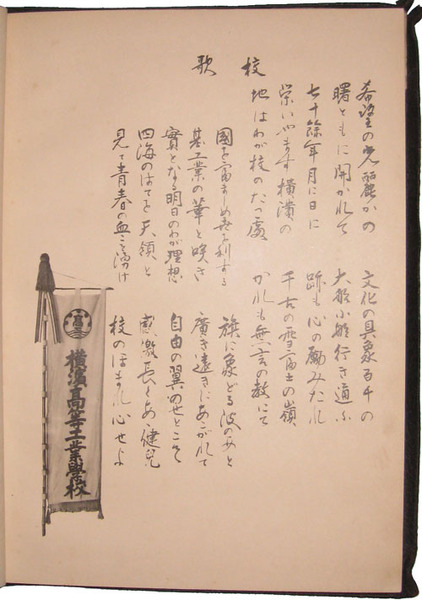 校歌
希望の光麗かの
曙ともに開かれて
七十餘年月に日に
栄いやます横濱の
地はわが校のたつ處
國を富ましめ世を利する
基工業の華と咲き
實となる明日のわが理想
四海のはてを天領と
見て青春の血こそ湧け
文化の具象百千の
大船小船行き通ふ
跡も心の勵みなれ
千古の雪富士の嶺
かれも無言の教にて
旗に象どる波の
廣き遠きにあこがれて
自由の翼のせとこそ
感激長くあれ健児
校のほまれ心せよ
横濱高等工業學校